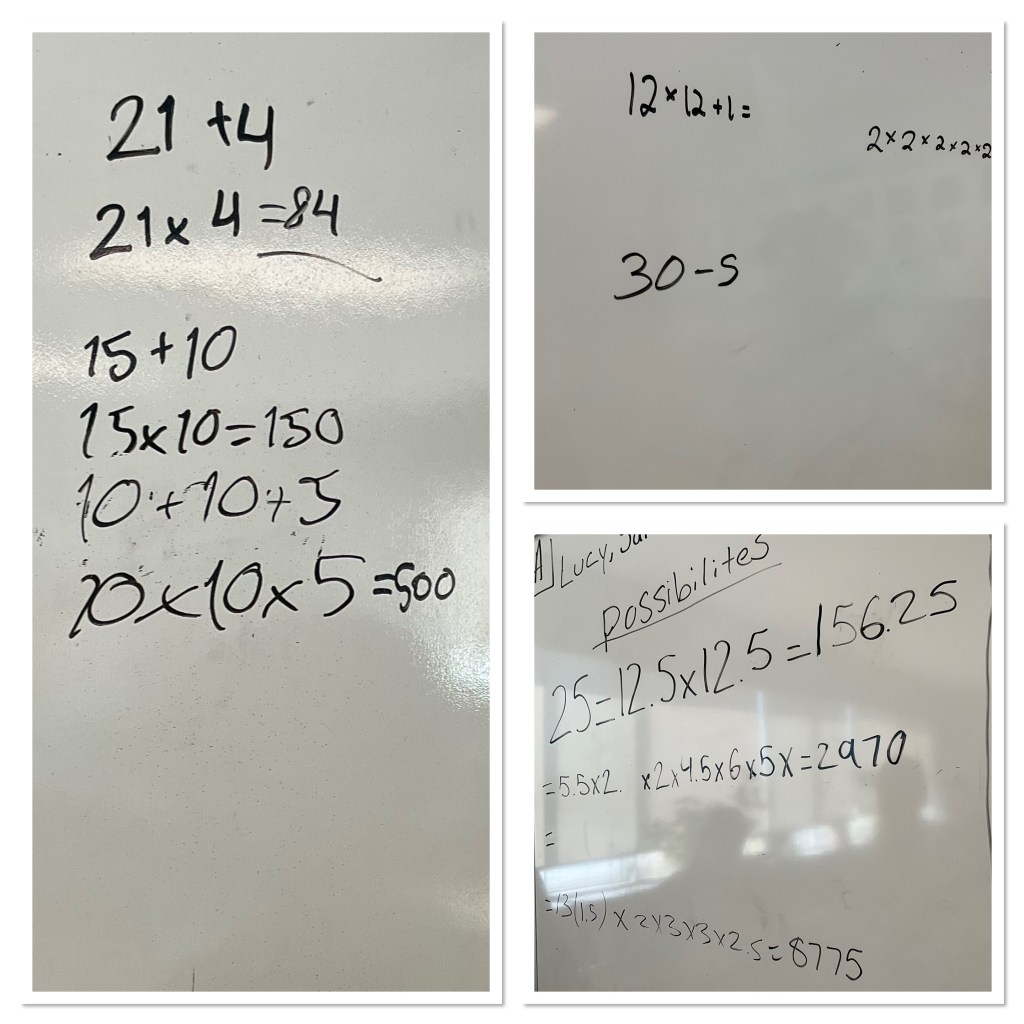 21 + 4
21 x 4 = 84
15 + 10
15 x 10 = 150
10 + 10 + 5
10 x 10 x 5 = 500
12 x 12 + 1 =
2 x 2 x 2 x 2 x 2
30 - 5
A] Lucy,
possibilites
25 = 12.5 x 12.5 = 156.25
= 5.5 x 2. x 2 x 4.5 x 6 x 5 x = 2970
=
= 13 (1.5) x 2 x 3 x 3 x 2.5 = 8775